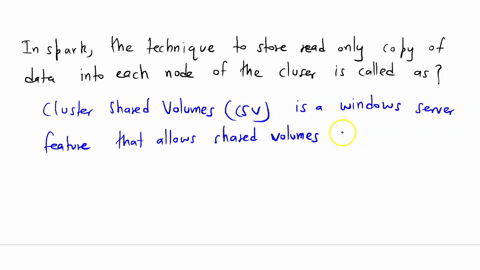 In spark, the technique to store read only copy of
data into each node of the cluser is called as?
Cluster Shared Volumes (CSV) is a windows server
feature that allows shared volumes